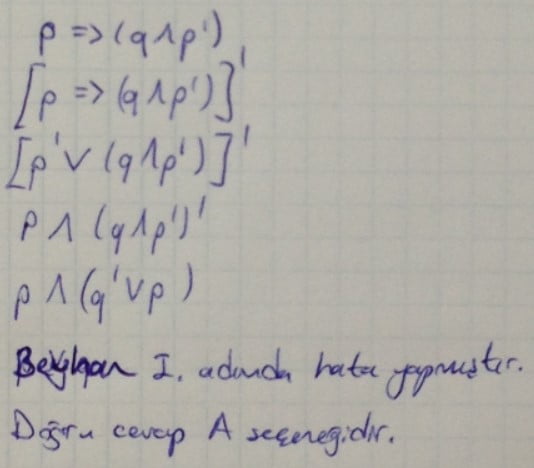 p => (q ∧ p')
[p => (q ∧ p')]'
[p' ∨ (q ∧ p')]'
p ∧ (q ∧ p')'
p ∧ (q' ∨ p)
I. adımda hata yapmıştır.
Doğru cevap A seçeneğidir.